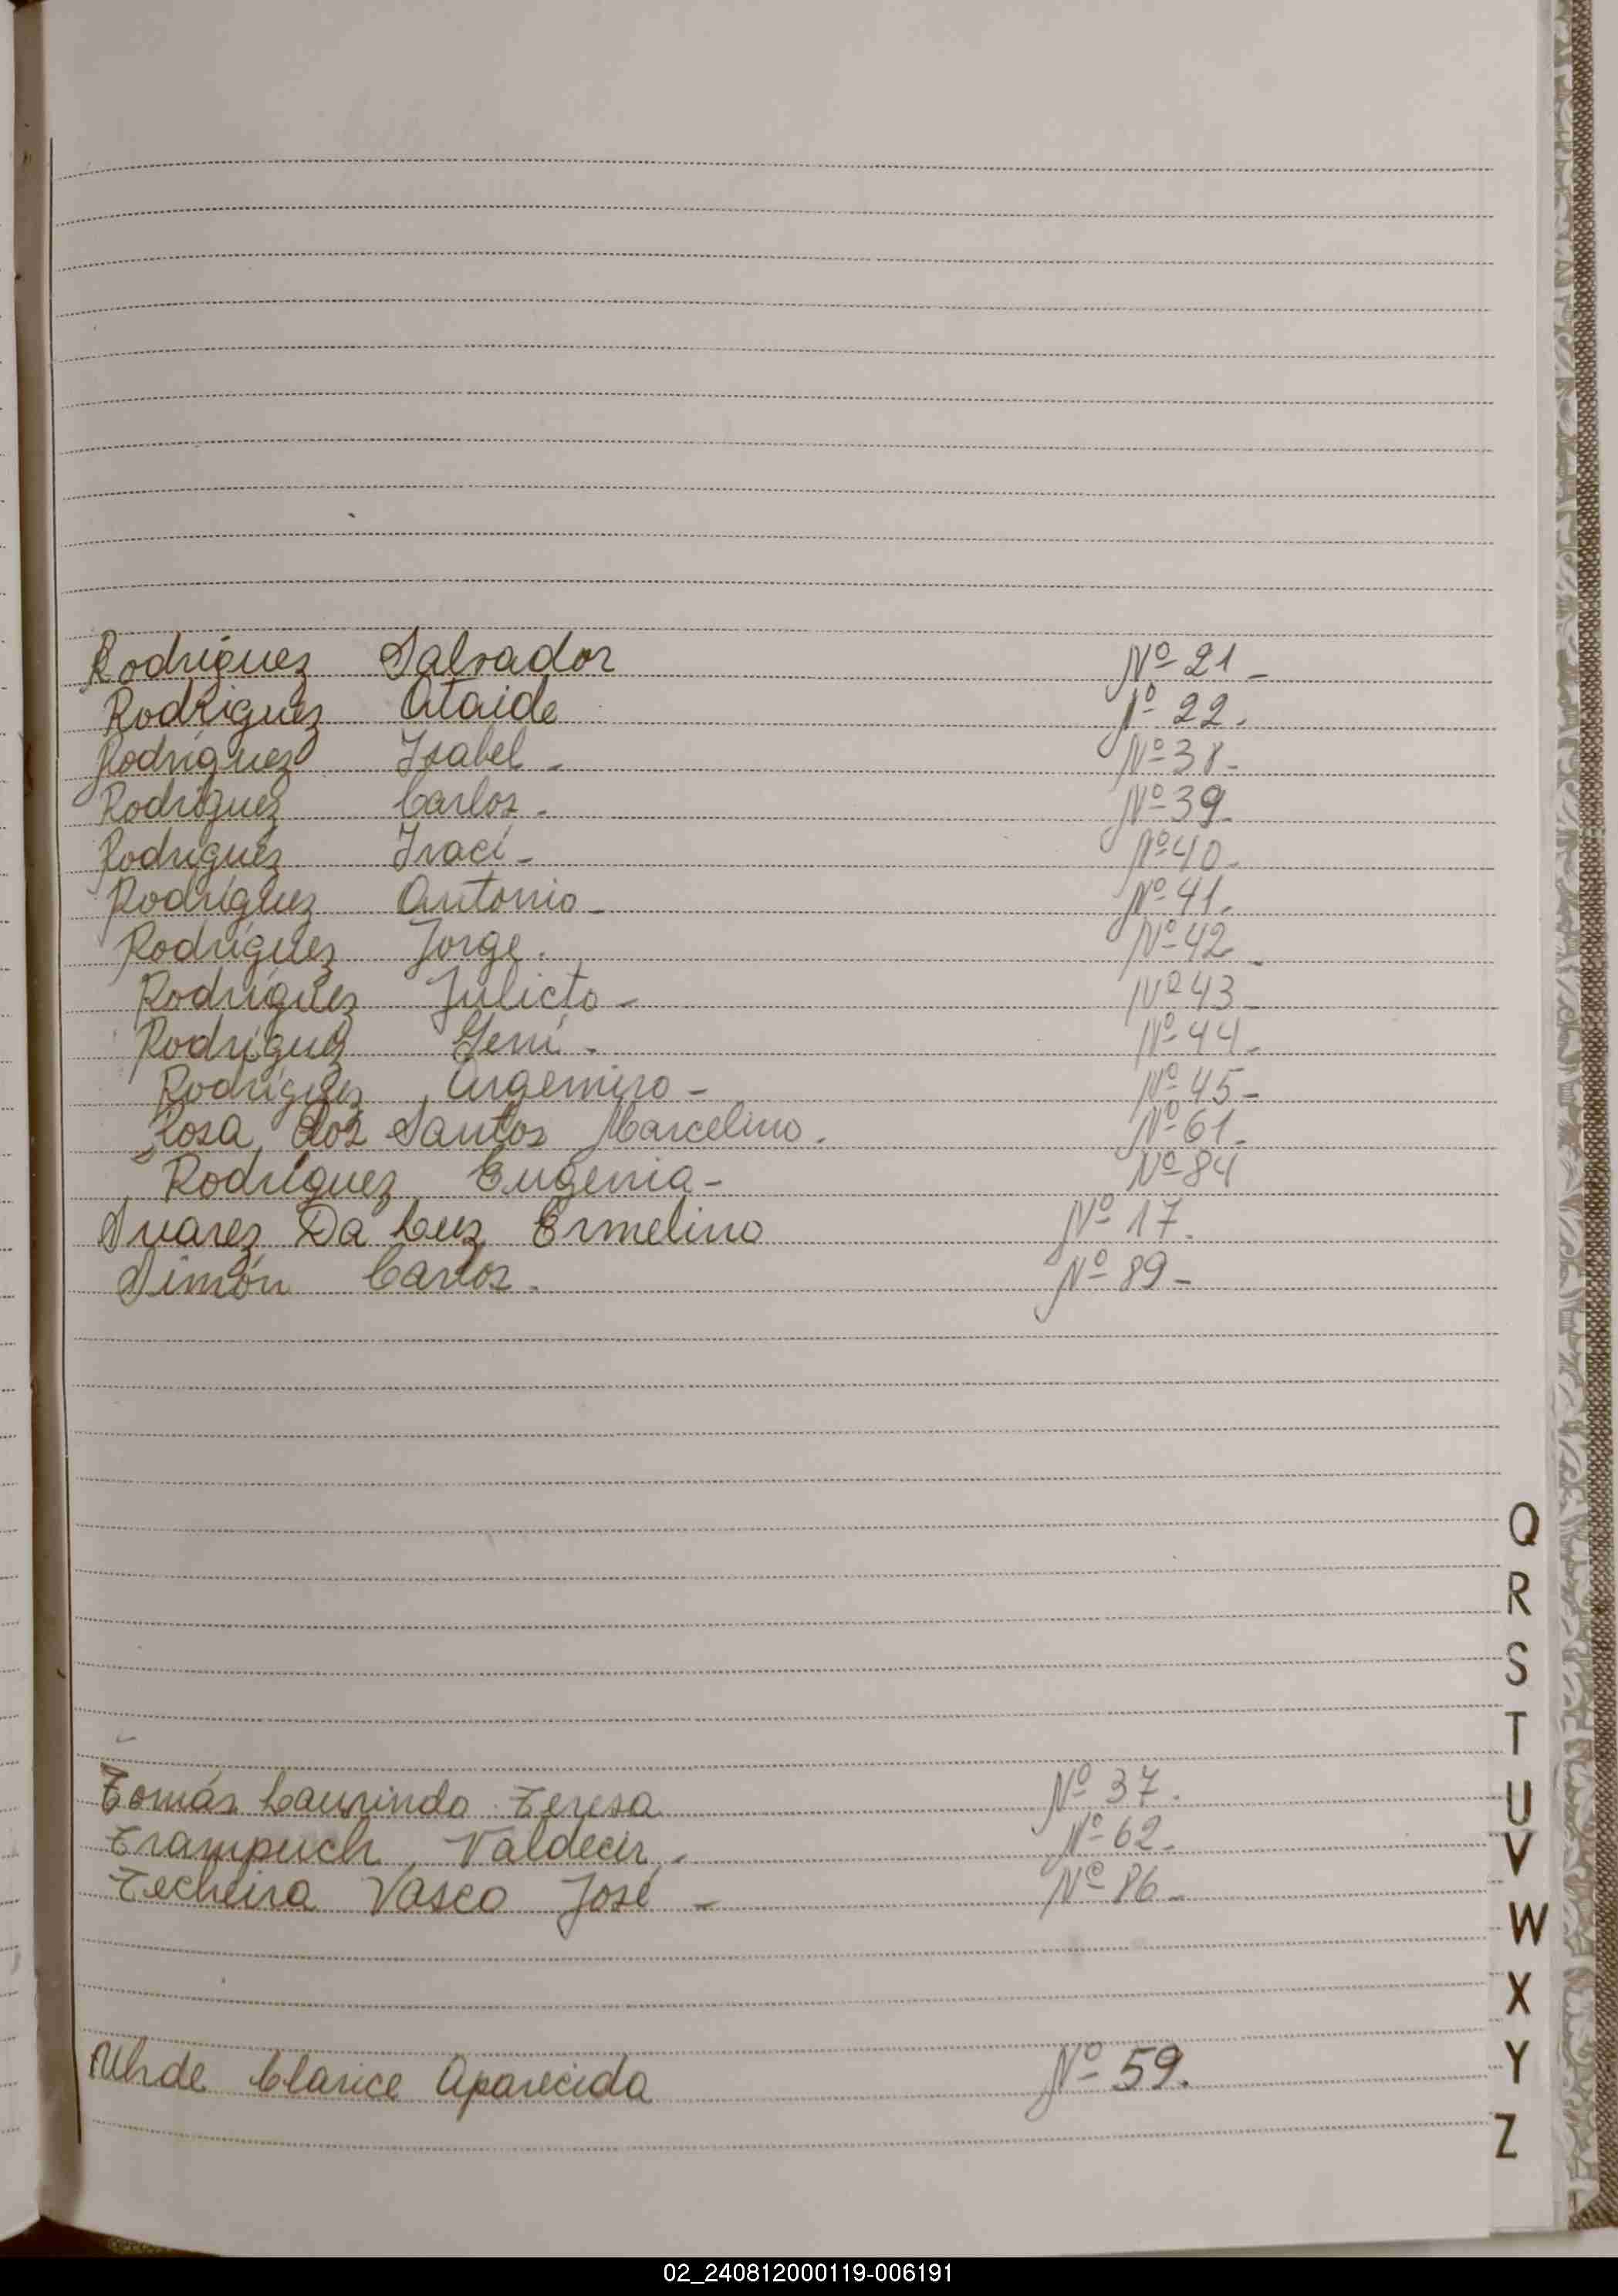 Rodriguez Salvador Nº 21-
Rodriguez Ataide Nº 22.
Rodriguez Isabel - Nº 38-
Rodriguez Carlos - Nº 39-
Rodriguez Iraci - Nº 40-
Rodriguez Antonio - Nº 41.
Rodriguez Jorge. Nº 42-
Rodriguez Julicto - Nº 43-
Rodriguez Geni - Nº 44-
Rodriguez Argemiro - Nº 45-
Rosa dos Santos Marcelino. Nº 61-
Rodriguez Eugenia - Nº 84
Suarez Da Luz Ermelino Nº 17.
Simón Carlos. Nº 89-
Q
R
S
T
Tomás Laurindo Teresa Nº 37.
U
Trampuch Valdecir. Nº 62-
V
Techeira Vasco José - Nº 86-
W
X
Y
Clarice Aparecida Nº 59.
Z
02_240812000119-006191